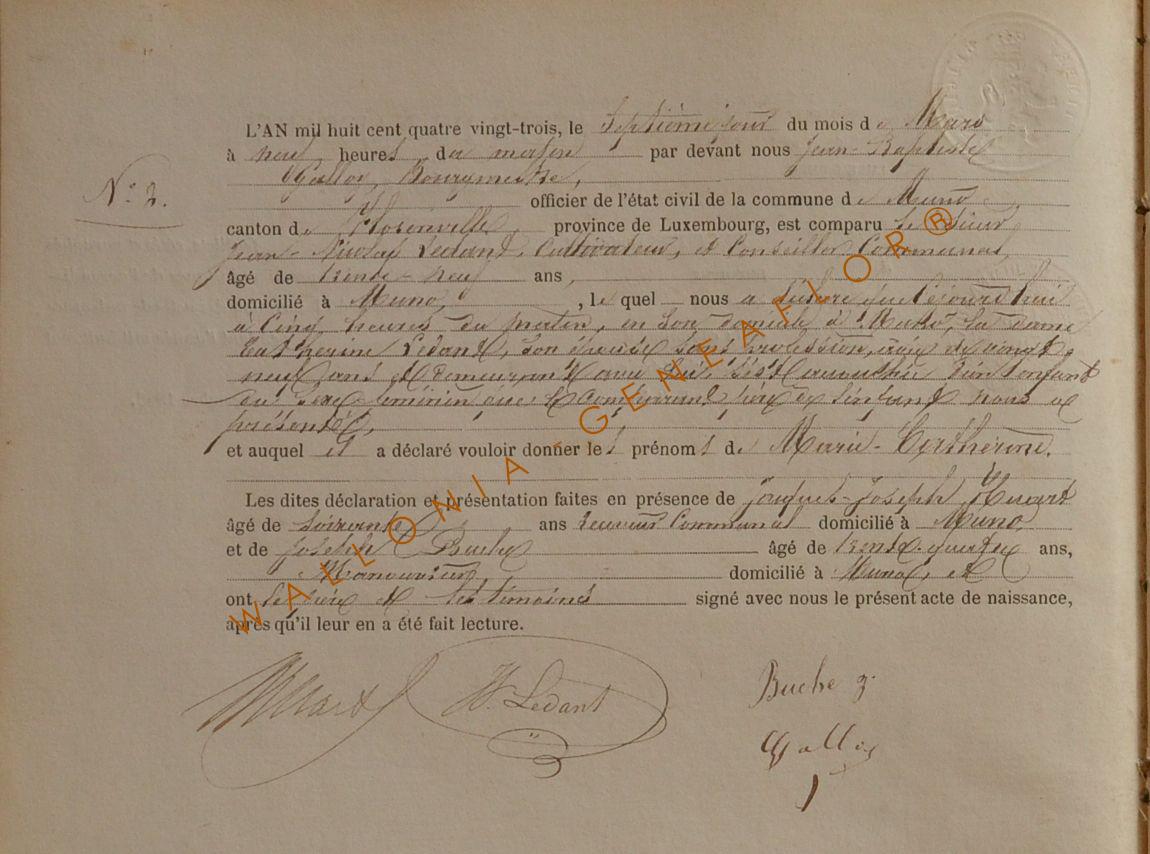 L'AN mil huit cent quatre vingt-trois, le septième jour du mois de Mars
à neuf heures du matin par devant nous Jean-Baptiste
Galloy, Bourgmestre,
N° 2.
officier de l'état civil de la commune de Muno
canton de Florenville, province de Luxembourg, est comparu le sieur
Jean-Nicolas Ledant, Cultivateur, et Conseiller Communal,
âgé de trente-neuf ans,
domicilié à Muno, , lequel nous a déclaré que cejourd'hui
à Cinq heures du matin, en son domicile à Muno, la dame
Catherine Ledant, son épouse sans profession, âgée de vingt
neuf ans et demeurant avec lui, s'est accouchée d'un enfant
du sexe féminin que le comparant père de l'enfant nous a
présenté,
et auquel il a déclaré vouloir donner les prénoms de Marie-Catherine.
Les dites déclaration et présentation faites en présence de Jacques-Joseph Huart
âgé de soixante ans receveur Communal domicilié à Muno,
et de Joseph Buche âgé de trente-quatre ans,
Manouvrier, domicilié à Muno, et
ont le père et les témoins signé avec nous le présent acte de naissance,
après qu'il leur en a été fait lecture.
Huart N. Ledant Buche j.
Galloy
WALLONIA - GENEAFLOR®